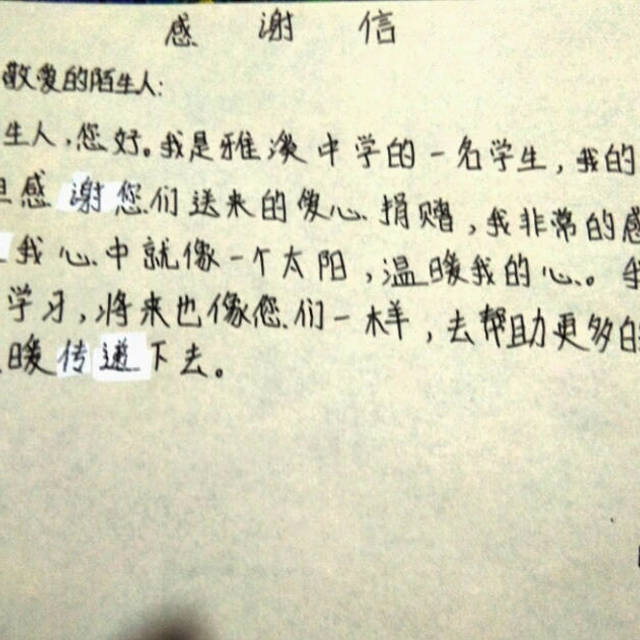 感谢信
敬爱的陌生人:
生人,您好。我是雅溪中学的一名学生,我的
但感谢您们送来的爱心捐赠,我非常的感
我心中就像一个太阳,温暖我的心。我
学习,将来也像您们一样,去帮助更多的
暖传递下去。